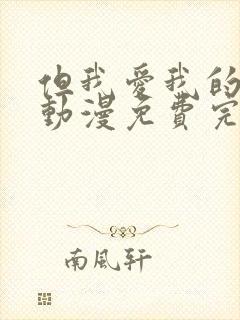 但我愛我的
動漫免費完
南風軒